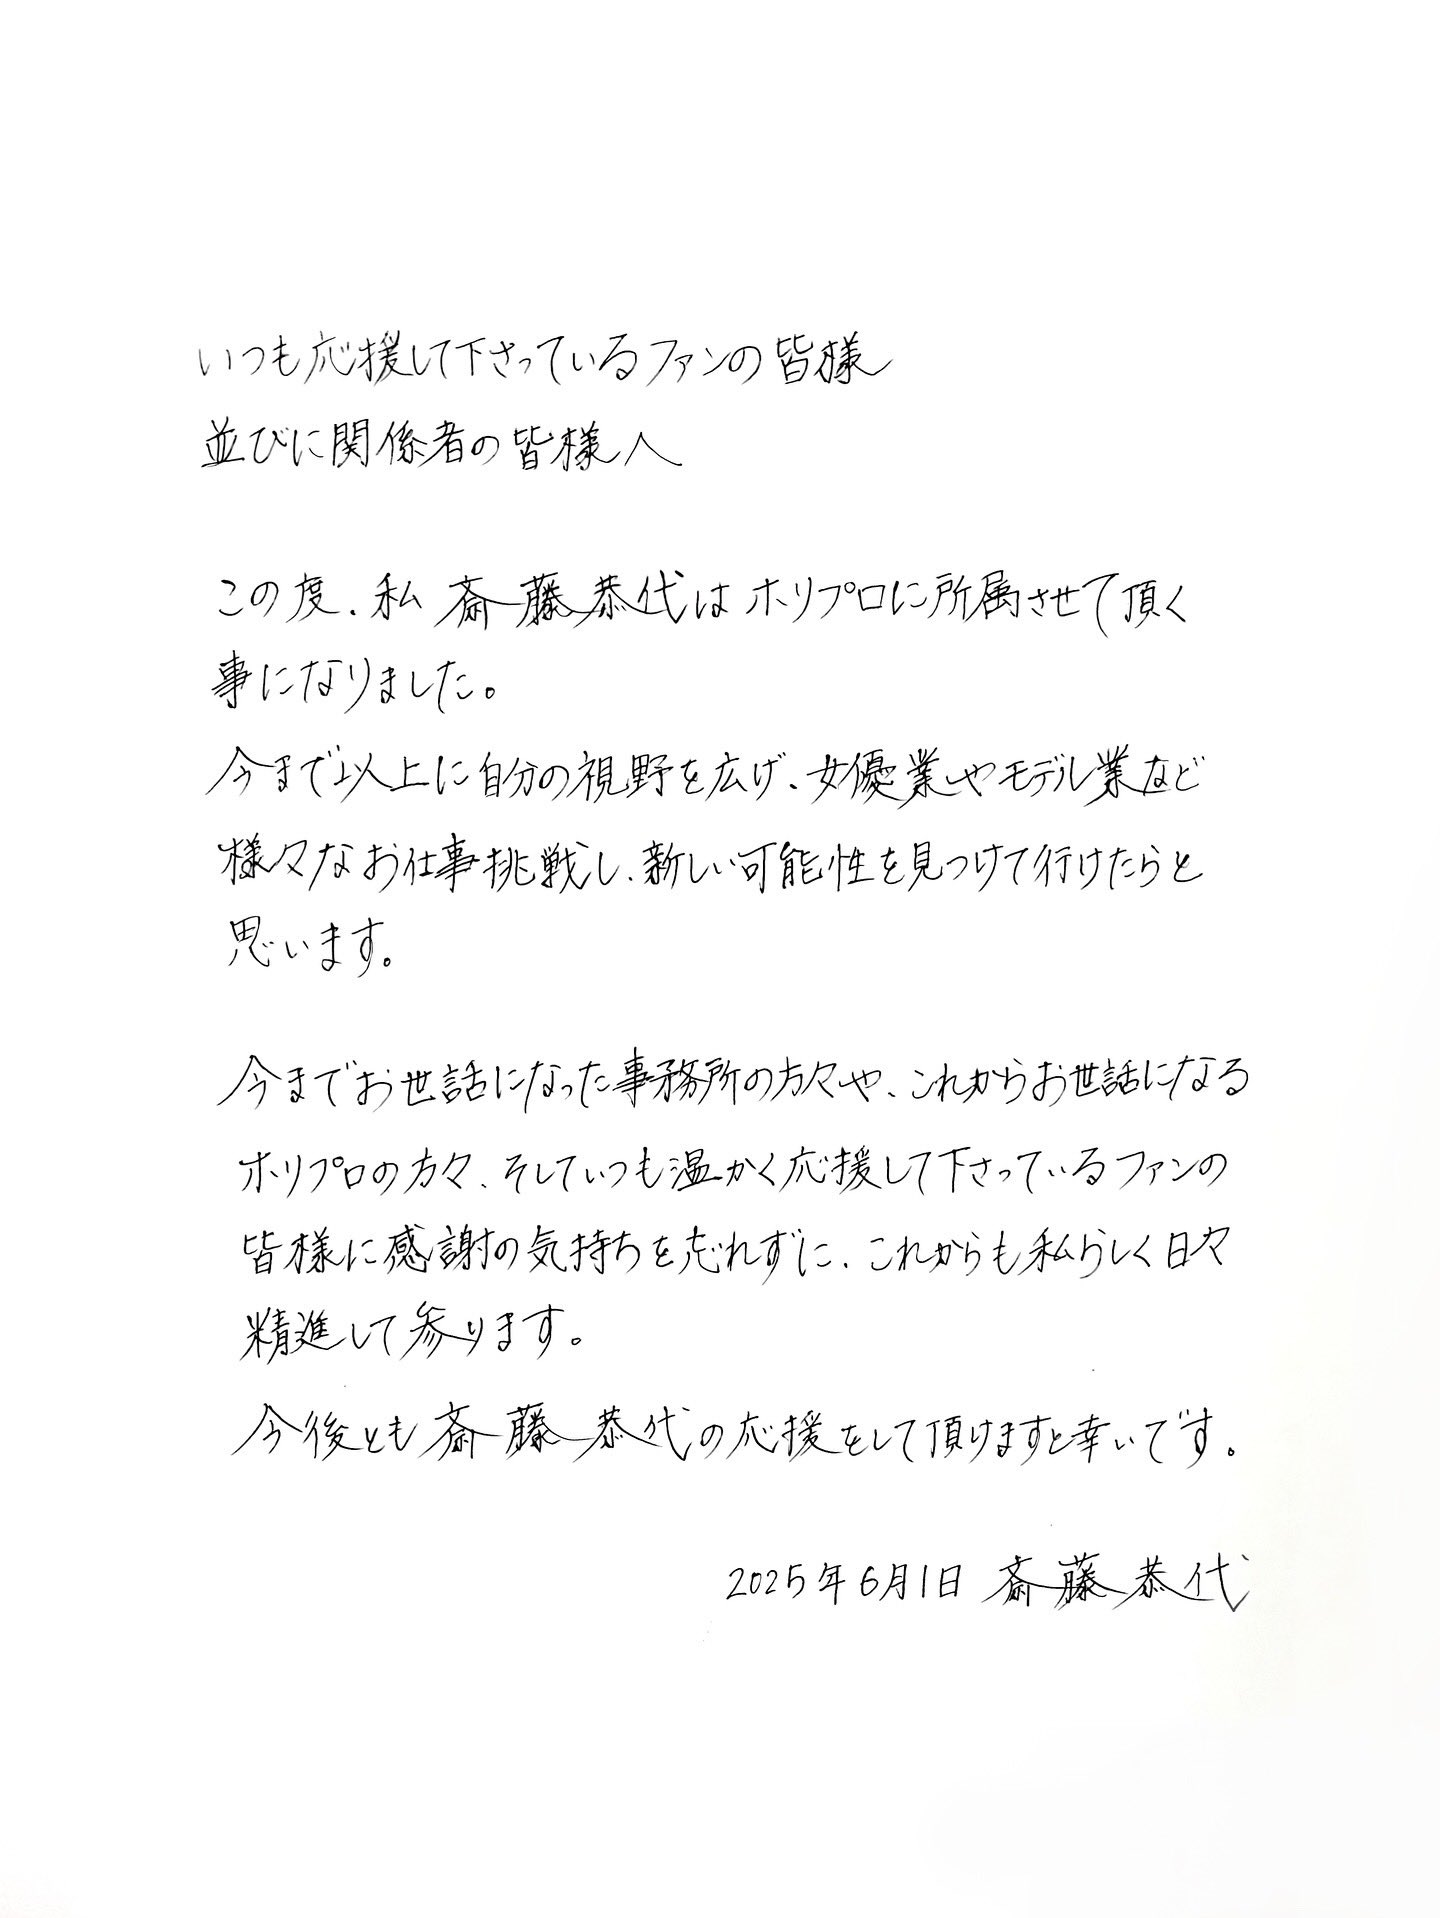 いつも応援して下さっているファンの皆様
並びに関係者の皆様へ
この度、私 斎藤恭代はホリプロに所属させて頂く
事になりました。
今まで以上に自分の視野を広げ、女優業やモデル業など
様々なお仕事挑戦し、新しい可能性を見つけて行けたらと
思います。
今までお世話になった事務所の方々や、これからお世話になる
ホリプロの方々、そしていつも温かく応援して下さっているファンの
皆様に感謝の気持ちを忘れずに、これからも私らしく日々
精進して参ります。
今後とも斎藤恭代の応援をして頂けますと幸いです。
2025年6月1日 斎藤恭代